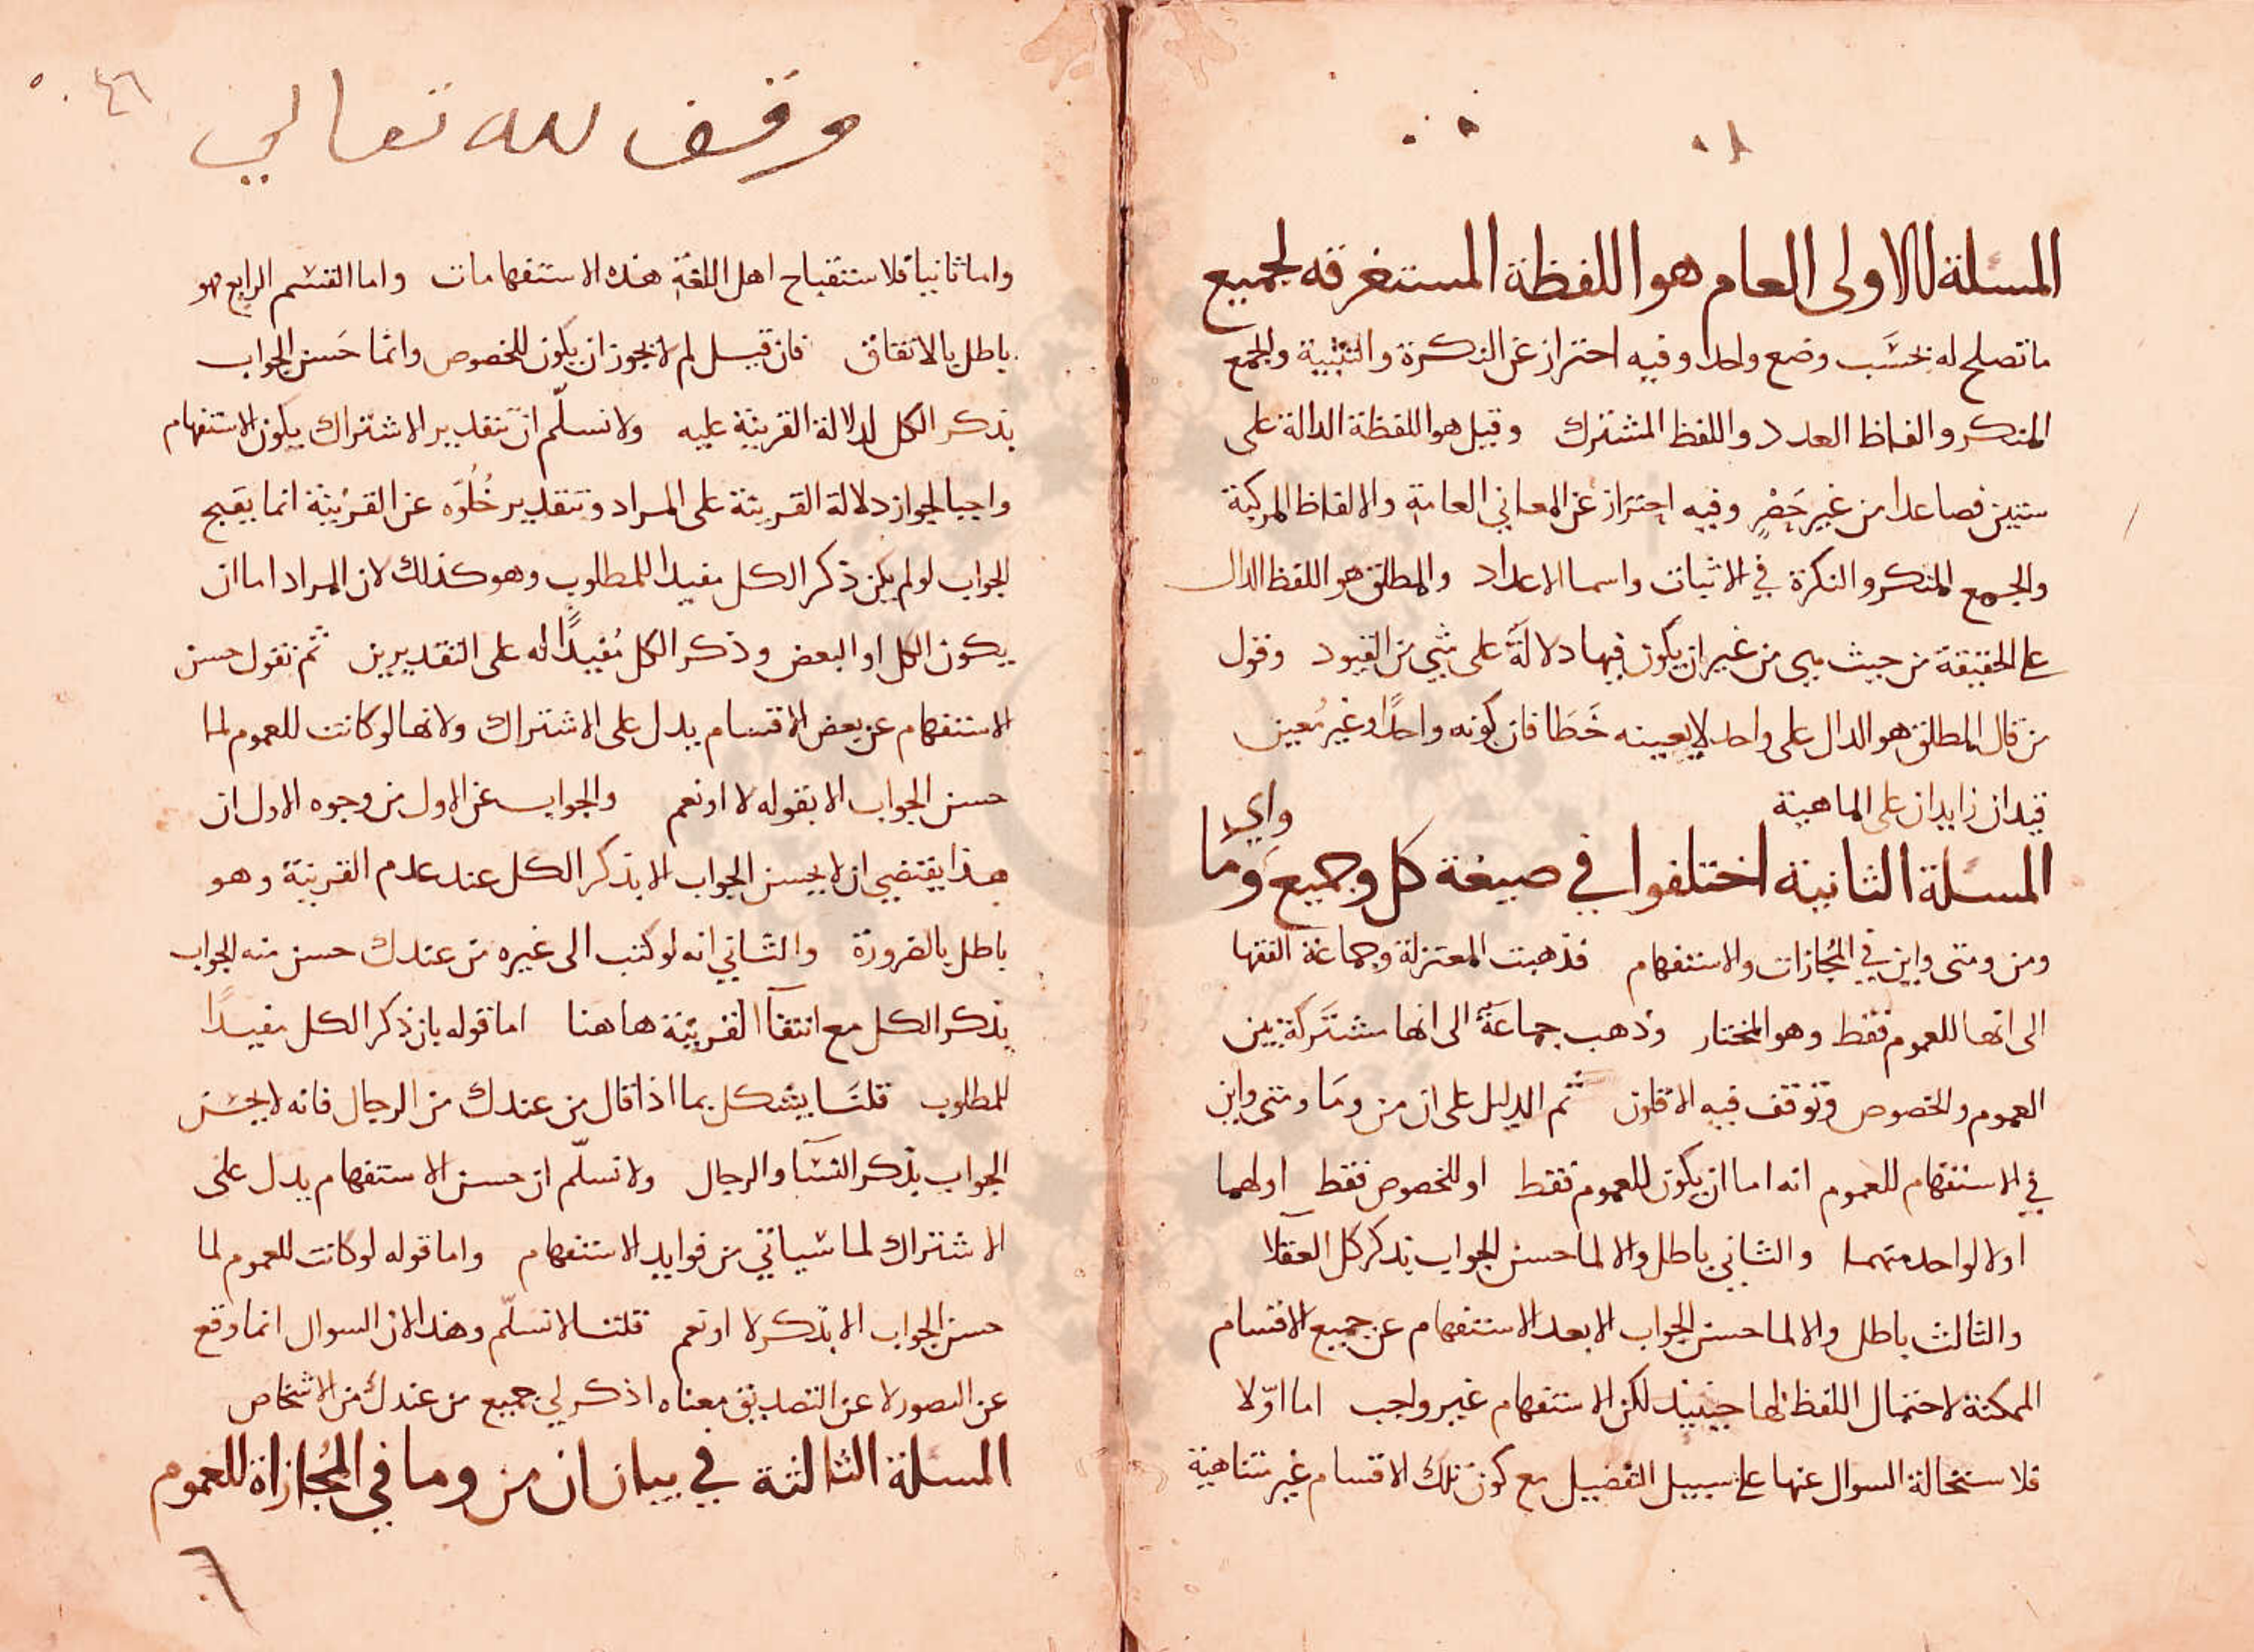 المسئلة الاولى العام هو اللفظة المستغرقه لجميع
ما تصلح له بحَسَب وضع واحد وفيه احتراز عن النكرة والتثنية والجمع
المنكر والفاظ العدد واللفظ المشترك وقيل هو اللفظة الدالة على
شيين فصاعدا من غير حَصْرٍ وفيه احتراز عن المعاني العامة والالفاظ المركبة
والجمع المنكر والنكرة في الاثبات واسما الاعداد والمطلق هو اللفظ الدال
على الحقيقة من حيث هي من غير ان يكون فيها دلالةٌ على شي من القيود وقول
من قال المطلق هو الدال على واحد لا بعينه خَطَا فان كونه واحدًا وغير مُعين
قيدان زايدان على الماهية
المسئلة الثانية اختلفوا في صيغة كل وجميع وَمَا واي
ومن ومتى واين في المُجازات والاستفهام فذهبت المعتزلة وجماعة الفقها
الى انها للعموم فقط وهو المختار وذهب جماعَةٌ الى انها مشتَركة بين
العموم والخصوص وتوقف فيه الاقلون ثم الدليل على ان من ومَا ومتى واين
في الاستفهام للعموم انه اما ان يكون للعموم فقط او للخصوص فقط او لهما
او لا لواحد منهما والثاني باطل والا لما حسن الجواب بذكر كل العقلآ
والثالث باطل والا لما حسن الجواب الا بعد الاستفهام عن جميع الاقسام
الممكنة لاحتمال اللفظ لها حينيذ لكن الاستفهام غير واجب اما اوّلا
فلاستحالة السوال عنها على سبيل التفصيل مع كون تلك الاقسام غير متناهية
٤٦
وقف لله تعالي
واما ثانيا فلاستقباح اهل اللغة هذه الاستفهامات واما القسم الرابع فهو
باطل بالاتفاق فان قيل لم لا يجوز ان يكون للخصوص وانما حَسن الجواب
بذكر الكل لدلالة القرينة عليه ولا نسلّم ان بتقدير الاشتراك يكون الاستفهام
واجبا لجواز دلالة القرينة على المراد وبتقدير خُلُوّه عن القرينة انما يقبح
الجواب لو لم يكن ذكر الكل مفيدا للمطلوب وهو كذلك لان المراد اما ان
يكون الكل او البعض وذكر الكل مُفيدًا له على التقديرين ثم نقول حسن
الاستفهام عن بعض الاقسام يدل على الاشتراك ولانها لو كانت للعموم لما
حسن الجواب الا بقوله لا او نعم والجواب عن الاول من وجوه الاول ان
هذا يقتضي ان لا يحسن الجواب الا بذكر الكل عند عدم القرينة وهو
باطل بالضرورة والثاني انه لو كتب الى غيره من عندك حسن منه الجواب
بذكر الكل مع انتفآ القرينة هاهنا اما قوله بان ذكر الكل مفيدًا
للمطلوب قلنَا يشكل بما اذا قال من عندك من الرجال فانه لا يحسَن
الجواب بذكر النسَآ والرجال ولا نسلّم ان حسن الاستفهام يدل على
الاشتراك لما سياتي من فوايد الاستفهام واما قوله لو كانت للعموم لما
حسن الجواب الا بذكر لا او نعم قلنا لا نسلّم وهذا لان السوال انما وقع
عن التصور لا عن التصديق معناه اذكر لي جميع من عندك من الاشخاص
المسئلة الثالثة في بيان ان من وما في المُجازاة للعموم